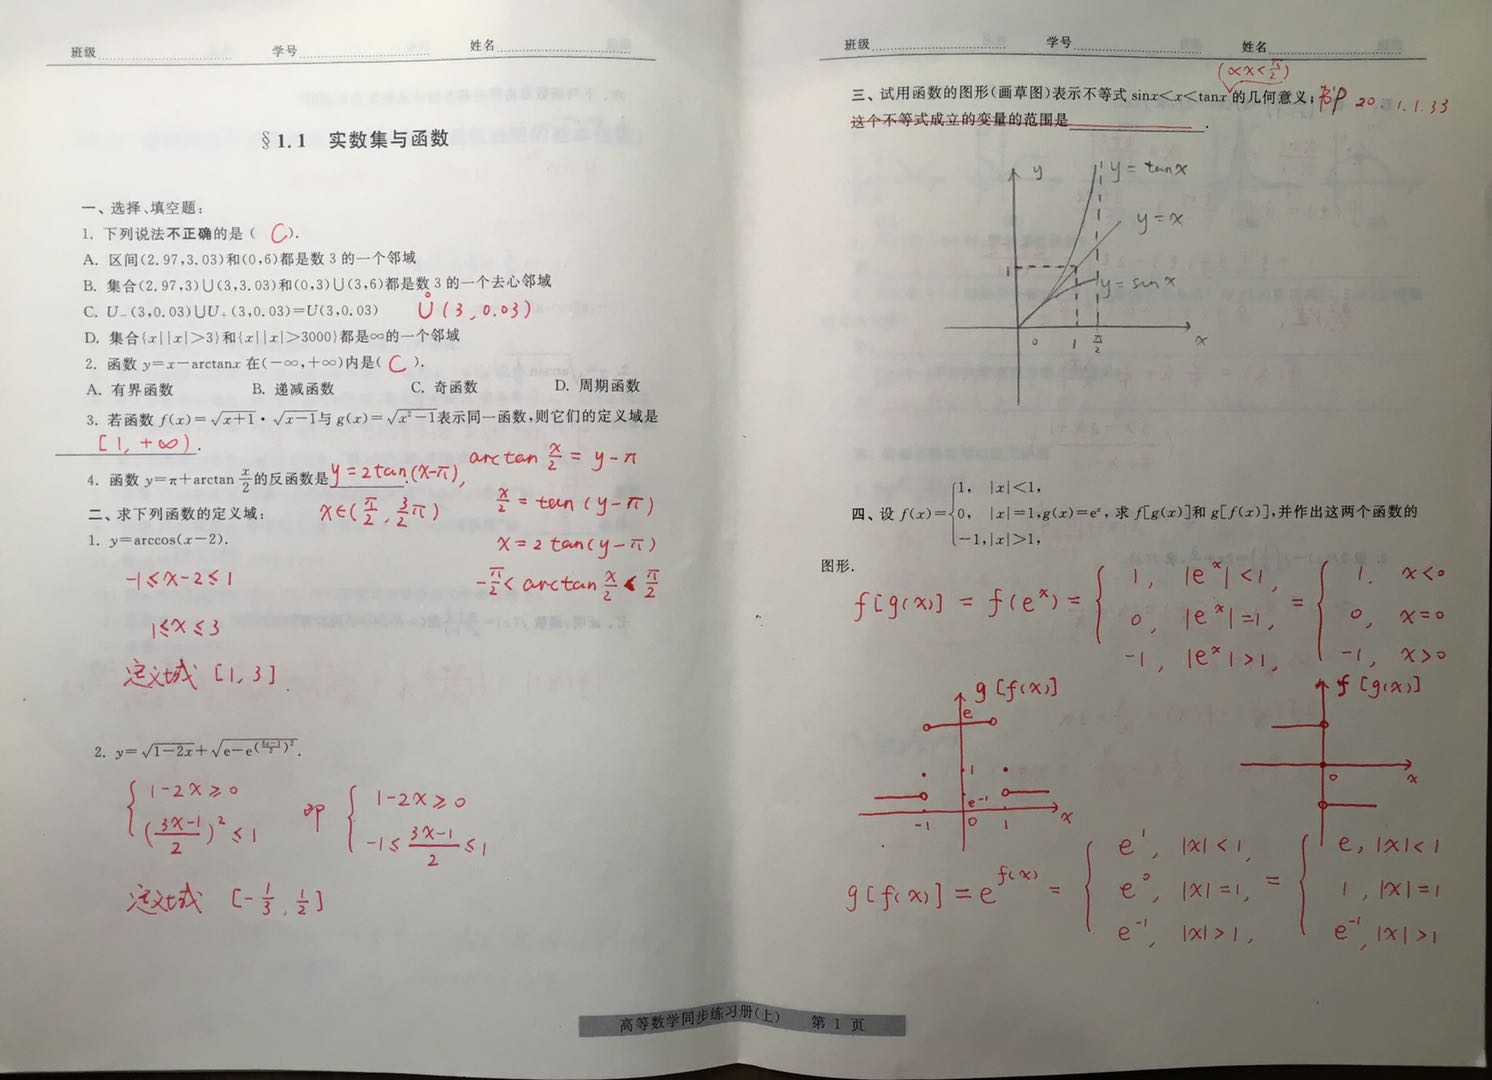 班级 学号 姓名
§1.1 实数集与函数
一、选择、填空题:
1. 下列说法不正确的是( C ).
A. 区间(2.97,3.03)和(0,6)都是数3的一个邻域
B. 集合(2.97,3)∪(3,3.03)和(0,3)∪(3,6)都是数3的一个去心邻域
C. U₋(3,0.03)∪U₊(3,0.03)=U(3,0.03) Ů(3,0.03)
D. 集合{x||x|>3}和{x||x|>3000}都是∞的一个邻域
2. 函数 y=x−arctanx 在(−∞,+∞)内是( C ).
A. 有界函数 B. 递减函数 C. 奇函数 D. 周期函数
3. 若函数 f(x)=√(x+1)·√(x−1)与 g(x)=√(x²−1)表示同一函数,则它们的定义域是
[1,+∞).
4. 函数 y=π+arctan x/2 的反函数是 y=2tan(x−π),
x∈(π/2, 3/2π)
arctan x/2 = y−π
x/2 = tan(y−π)
x=2tan(y−π)
−π/2 < arctan x/2 < π/2
二、求下列函数的定义域:
1. y=arccos(x−2).
−1≤x−2≤1
1≤x≤3
定义域 [1,3].
2. y=√(1−2x)+√(e−e^((3x−1)/2)²).
{ 1−2x≥0 即 { 1−2x≥0
((3x−1)/2)²≤1 −1≤(3x−1)/2≤1
定义域 [−1/3, 1/2]
班级 学号 姓名
(0<x<π/2)
三、试用函数的图形(画草图)表示不等式 sinx<x<tanx 的几何意义; 书P20. 1.1.33
这个不等式成立的变量的范围是 .
y y=tanx
y=x
1 y=sinx
0 1 π/2 x
四、设 f(x)={1, |x|<1, 0, |x|=1, −1,|x|>1, g(x)=eˣ, 求 f[g(x)]和 g[f(x)],并作出这两个函数的
图形.
f[g(x)] = f(eˣ) = { 1, |eˣ|<1, = { 1, x<0
0, |eˣ|=1, 0, x=0
−1, |eˣ|>1, −1, x>0
g[f(x)] f[g(x)]
e
1
e⁻¹
−1 0 1 x
0 x
g[f(x)] = e^f(x) = { e¹, |x|<1, = { e, |x|<1
e⁰, |x|=1, 1, |x|=1
e⁻¹, |x|>1, e⁻¹, |x|>1
高等数学同步练习册(上) 第 1 页